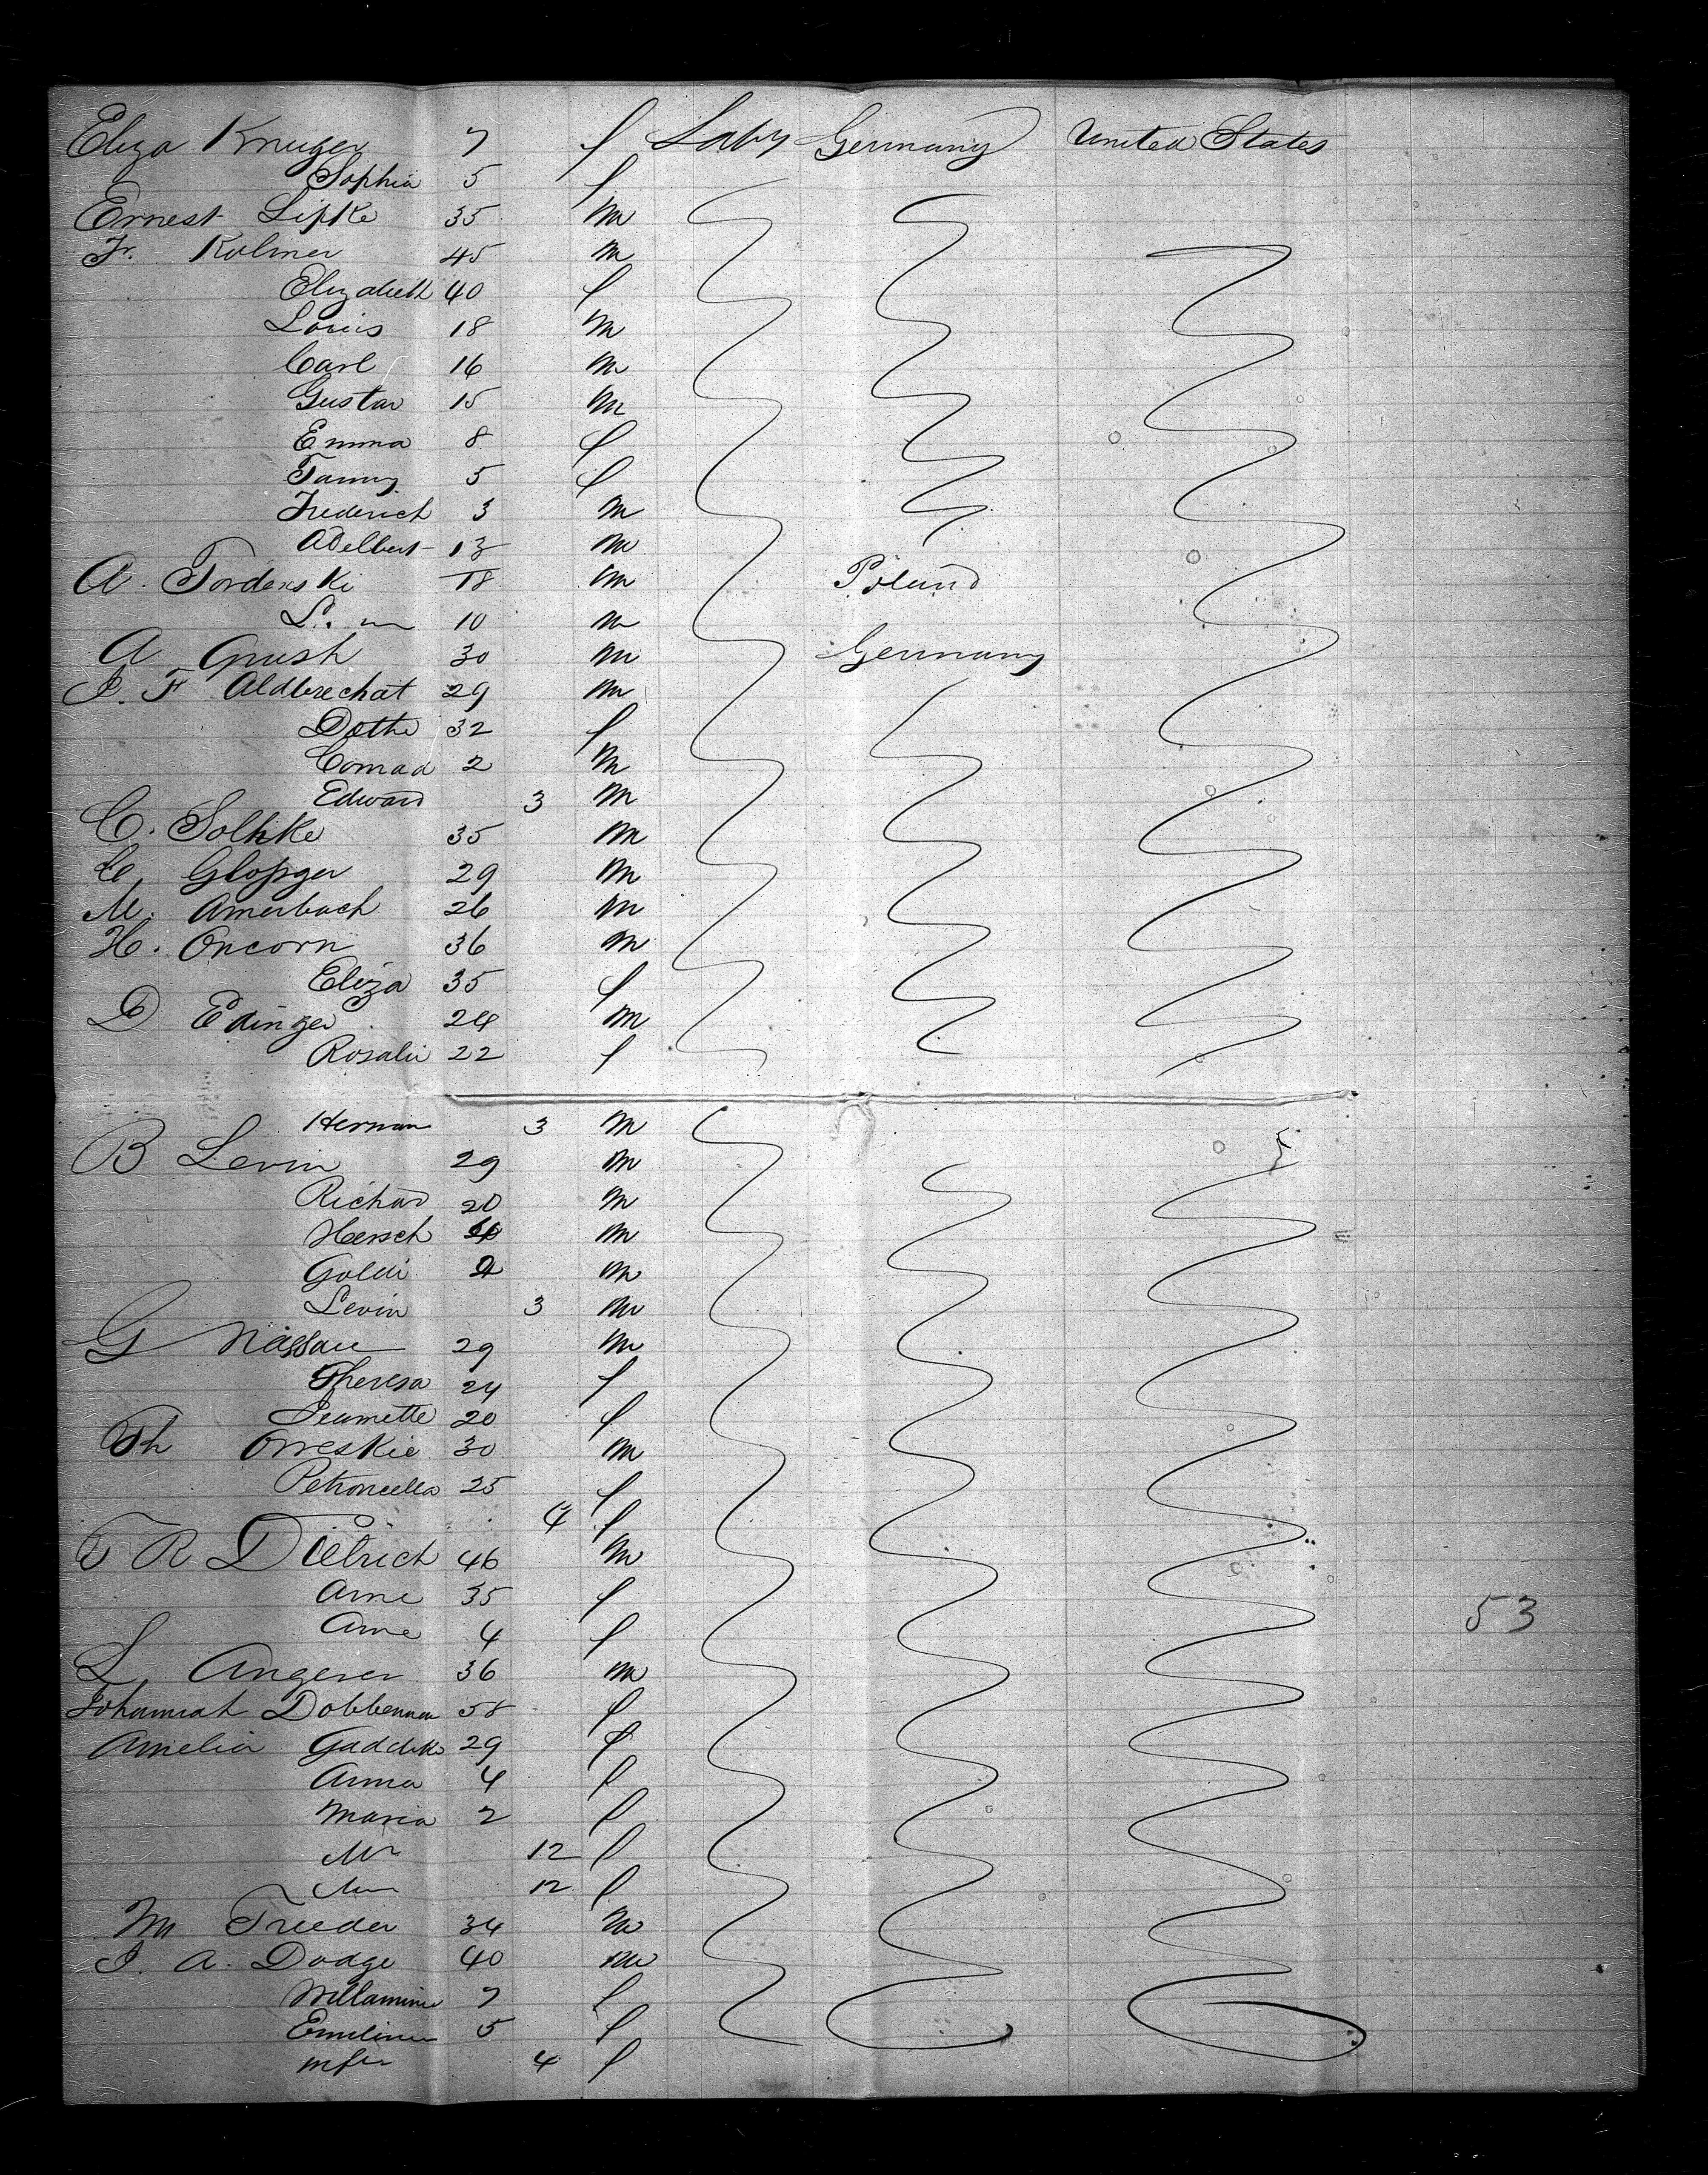 Eliza Kruger 7 f Laby Germany United States
Sophia 5 f
Ernest Lipke 35 m
Fr. Kolmer 45 m
Elizabeth 40 f
Louis 18 m
Carl 16 m
Gustav 15 m
Emma 8 f
Fanny 5 f
Frederich 3 m
Adelbert 13 m
A. Tordenski 18 m Poland
10 m
A Grush 30 m Germany
J. F Aldbrechat 29 m
Dothe 32 f
Conrad 2 m
Edward 3 m
C. Solhke 35 m
C. Glopger 29 m
M. Amerbach 26 m
H. Oncorn 36 m
Eliza 35 f
D Edinger 24 m
Rosalie 22 f
Herman 3 m
B Levin 29 m
Richard 20 m
Hersch 4 m
Goldi 2 m
Levin 3 m
G Nassau 29 m
Theresa 24 f
Jeanette 20 f
Th Orreskie 30 m
Petroncella 25 f
4 f
R Dietrich 46 m
Anne 35 f
Anne 4 f
53
L Angerer 36 m
Johannah Dobbenman 58 f
Amelia Gaddeke 29 f
Anna 4 f
Maria 2 f
12 f
12 f
M Treeder 34 m
J. A. Dodge 40 m
Willamine 7 f
Emiline 5 f
Infn 4 f